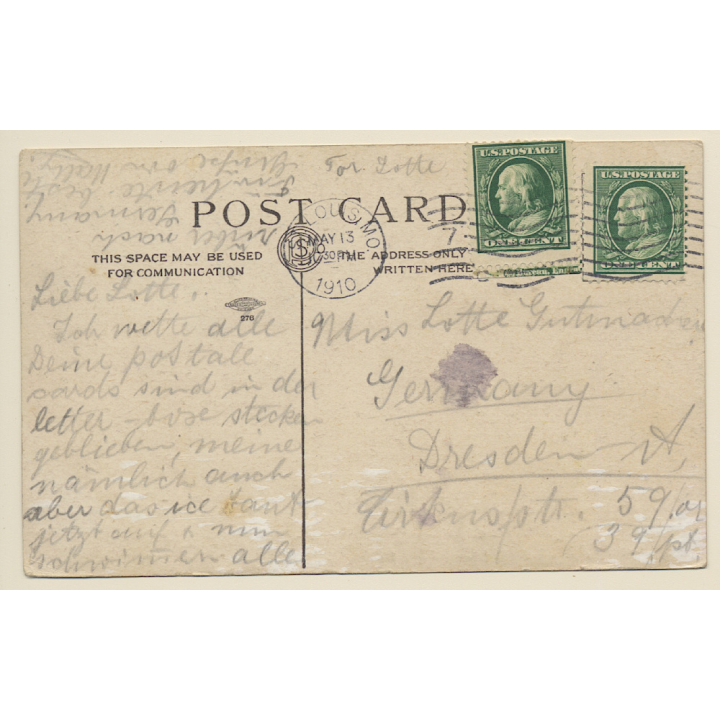 For Lotte
U.S. POSTAGE
ONE CENT
U.S. POSTAGE
ONE CENT
POST CARD
LOUIS, MO.
MAY 13
30 PM
1910
THIS SPACE MAY BE USED
FOR COMMUNICATION
THE ADDRESS ONLY
WRITTEN HERE
276
Liebe Lotte,
Ich wette alle
Deine postale
cards sind in der
letter-box stecken
geblieben, meine
nämlich auch
aber das ice tank
jetzt auf & nun
schwimmen alle
rüber nach
Germany
beste
Grüße von
Miss Lotte Gutmann
Germany
Dresden A,
Zirkusstr.